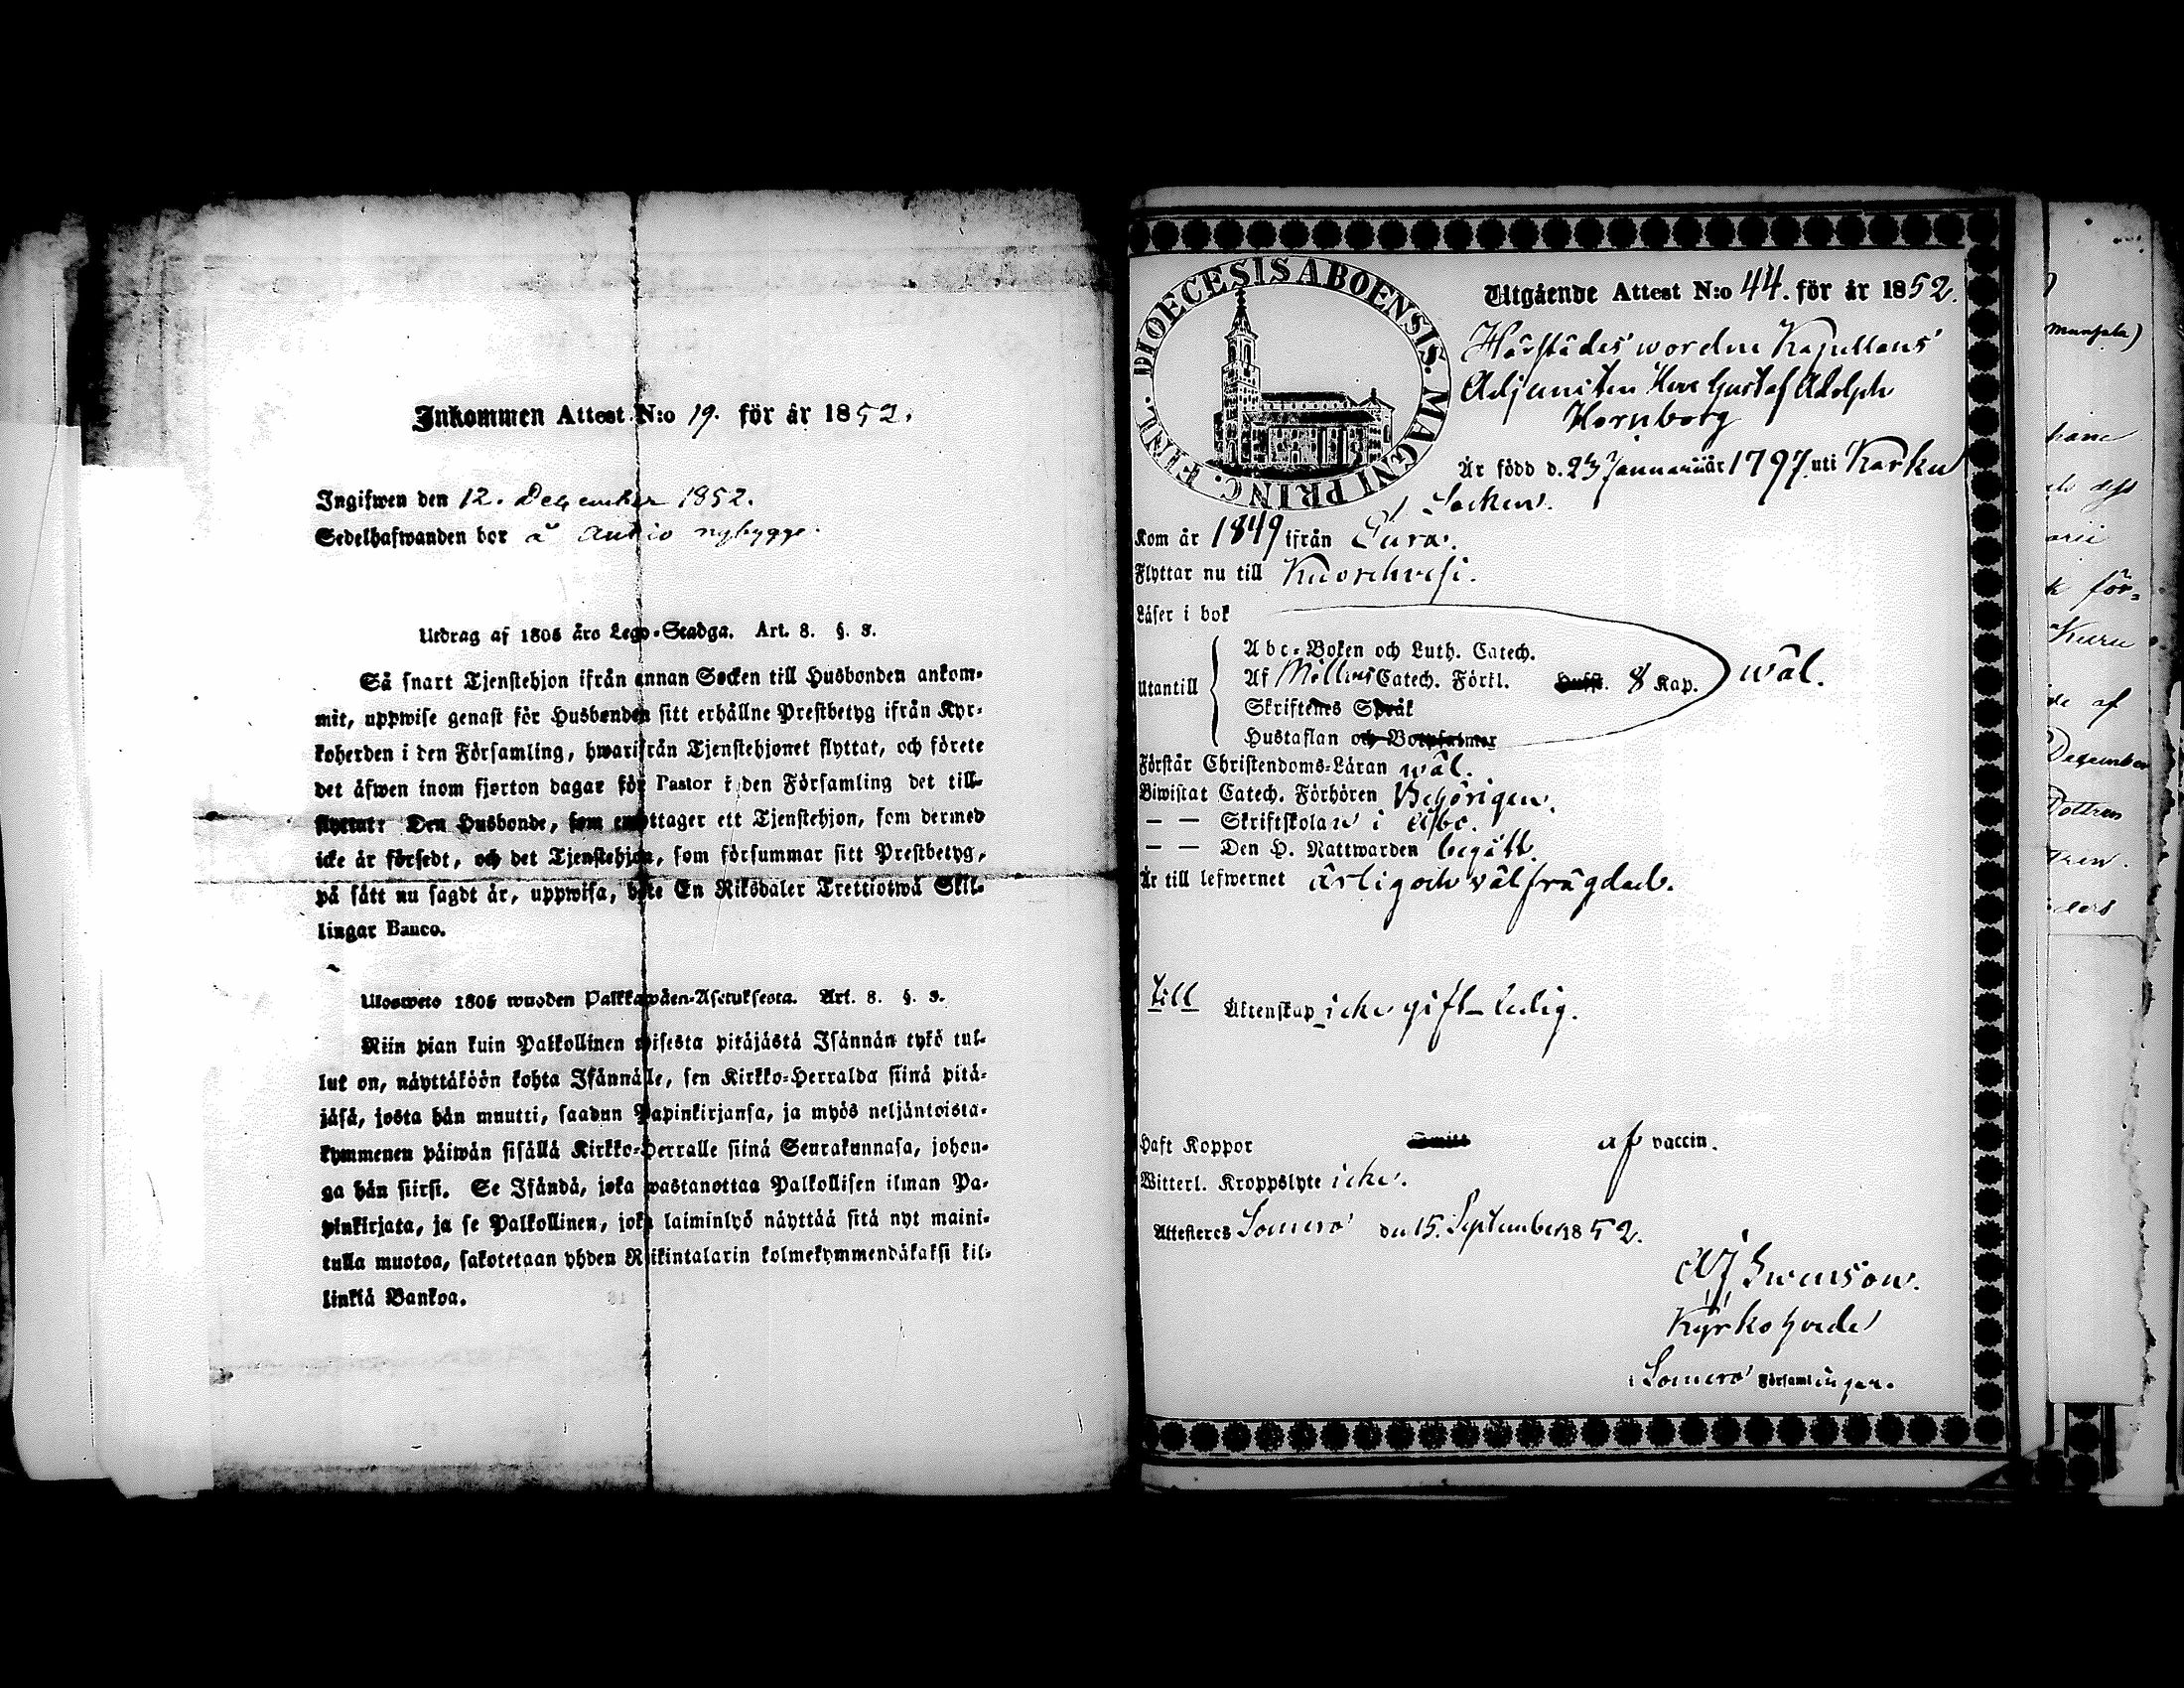 Inkommen Attest N:o 19. för år 1852.
Ingifwen den 12. December 1852.
Sedelhafwanden bor å Antio nybygge.
Utdrag af 1805 års Lego-Stadga. Art. 8. §. 3.
Så snart Tjenstehjon ifrån annan Socken till Husbonden ankom-
mit, uppwise genast för Husbonden sitt erhållne Prestbetyg ifrån Kyr-
koherden i den Församling, hwarifrån Tjenstehjonet flyttat, och förete
det äfwen inom fjorton dagar för Pastor i den Församling det till-
flyttat: Den Husbonde, som emottager ett Tjenstehjon, som dermed
icke är försedt, och det Tjenstehjon, som försummar sitt Prestbetyg,
på sätt nu sagdt är, uppwisa, böte En Riksdaler Trettiotwå Skil-
lingar Banco.
Ulosweto 1805 wuoden Palkkawäen-Asetuksesta. Art. 8. §. 3.
Niin pian kuin Palkollinen toisesta pitäjästä Isännän tykö tul-
lut on, näyttäköön kohta Isännälle, sen Kirkko-Herralda siinä pitä-
jäsä, josta hän muutti, saadun Papinkirjansa, ja myös neljäntoista-
kymmenen päiwän sisällä Kirkko-Herralle siinä Seurakunnasa, johon-
ga hän siirsi. Se Isändä, joka wastanottaa Palkollisen ilman Pa-
pinkirjata, ja se Palkollinen, joka laiminlyö näyttää sitä nyt maini-
tulla muotoa, sakotetaan yhden Riikintalarin kolmekymmendäkaksi kil-
linkiä Bankoa.
DIOECESIS ABOENSIS. MAGNI PRINC. FINL.
Utgående Attest N:o 44. för år 1852.
Härstädes wordne Kapellans
Adjuncten Herr Gustaf Adolph
Hornborg
Är född d. 23 Januarii år 1797. uti Karku
Socken.
Kom år 1849 ifrån Eura.
Flyttar nu till Kuorehvesi.
Läser i bok
Utantill
Abc-Boken och Luth. Catech.
Af Möllers Catech. Förkl. Hufst. 8 Kap. wäl.
Skriftenes Språk
Hustaflan och Botpsalmer
Förstår Christendoms-Läran wäl.
Biwistat Catech. Förhören Behörigen.
— — Skriftskolan i
— — Den H. Nattwarden begått.
Är till lefwernet ärlig och välfrägdad.
till Äktenskap icke gift - ledig.
Haft Koppor af vaccin.
Witterl. Kroppslyte icke.
Attesteres Somero den 15. September 1852.
Swenson.
Kyrkoherde
i Somero Församlingar.
munsala)
för-
Kuru
af
December
Dottren